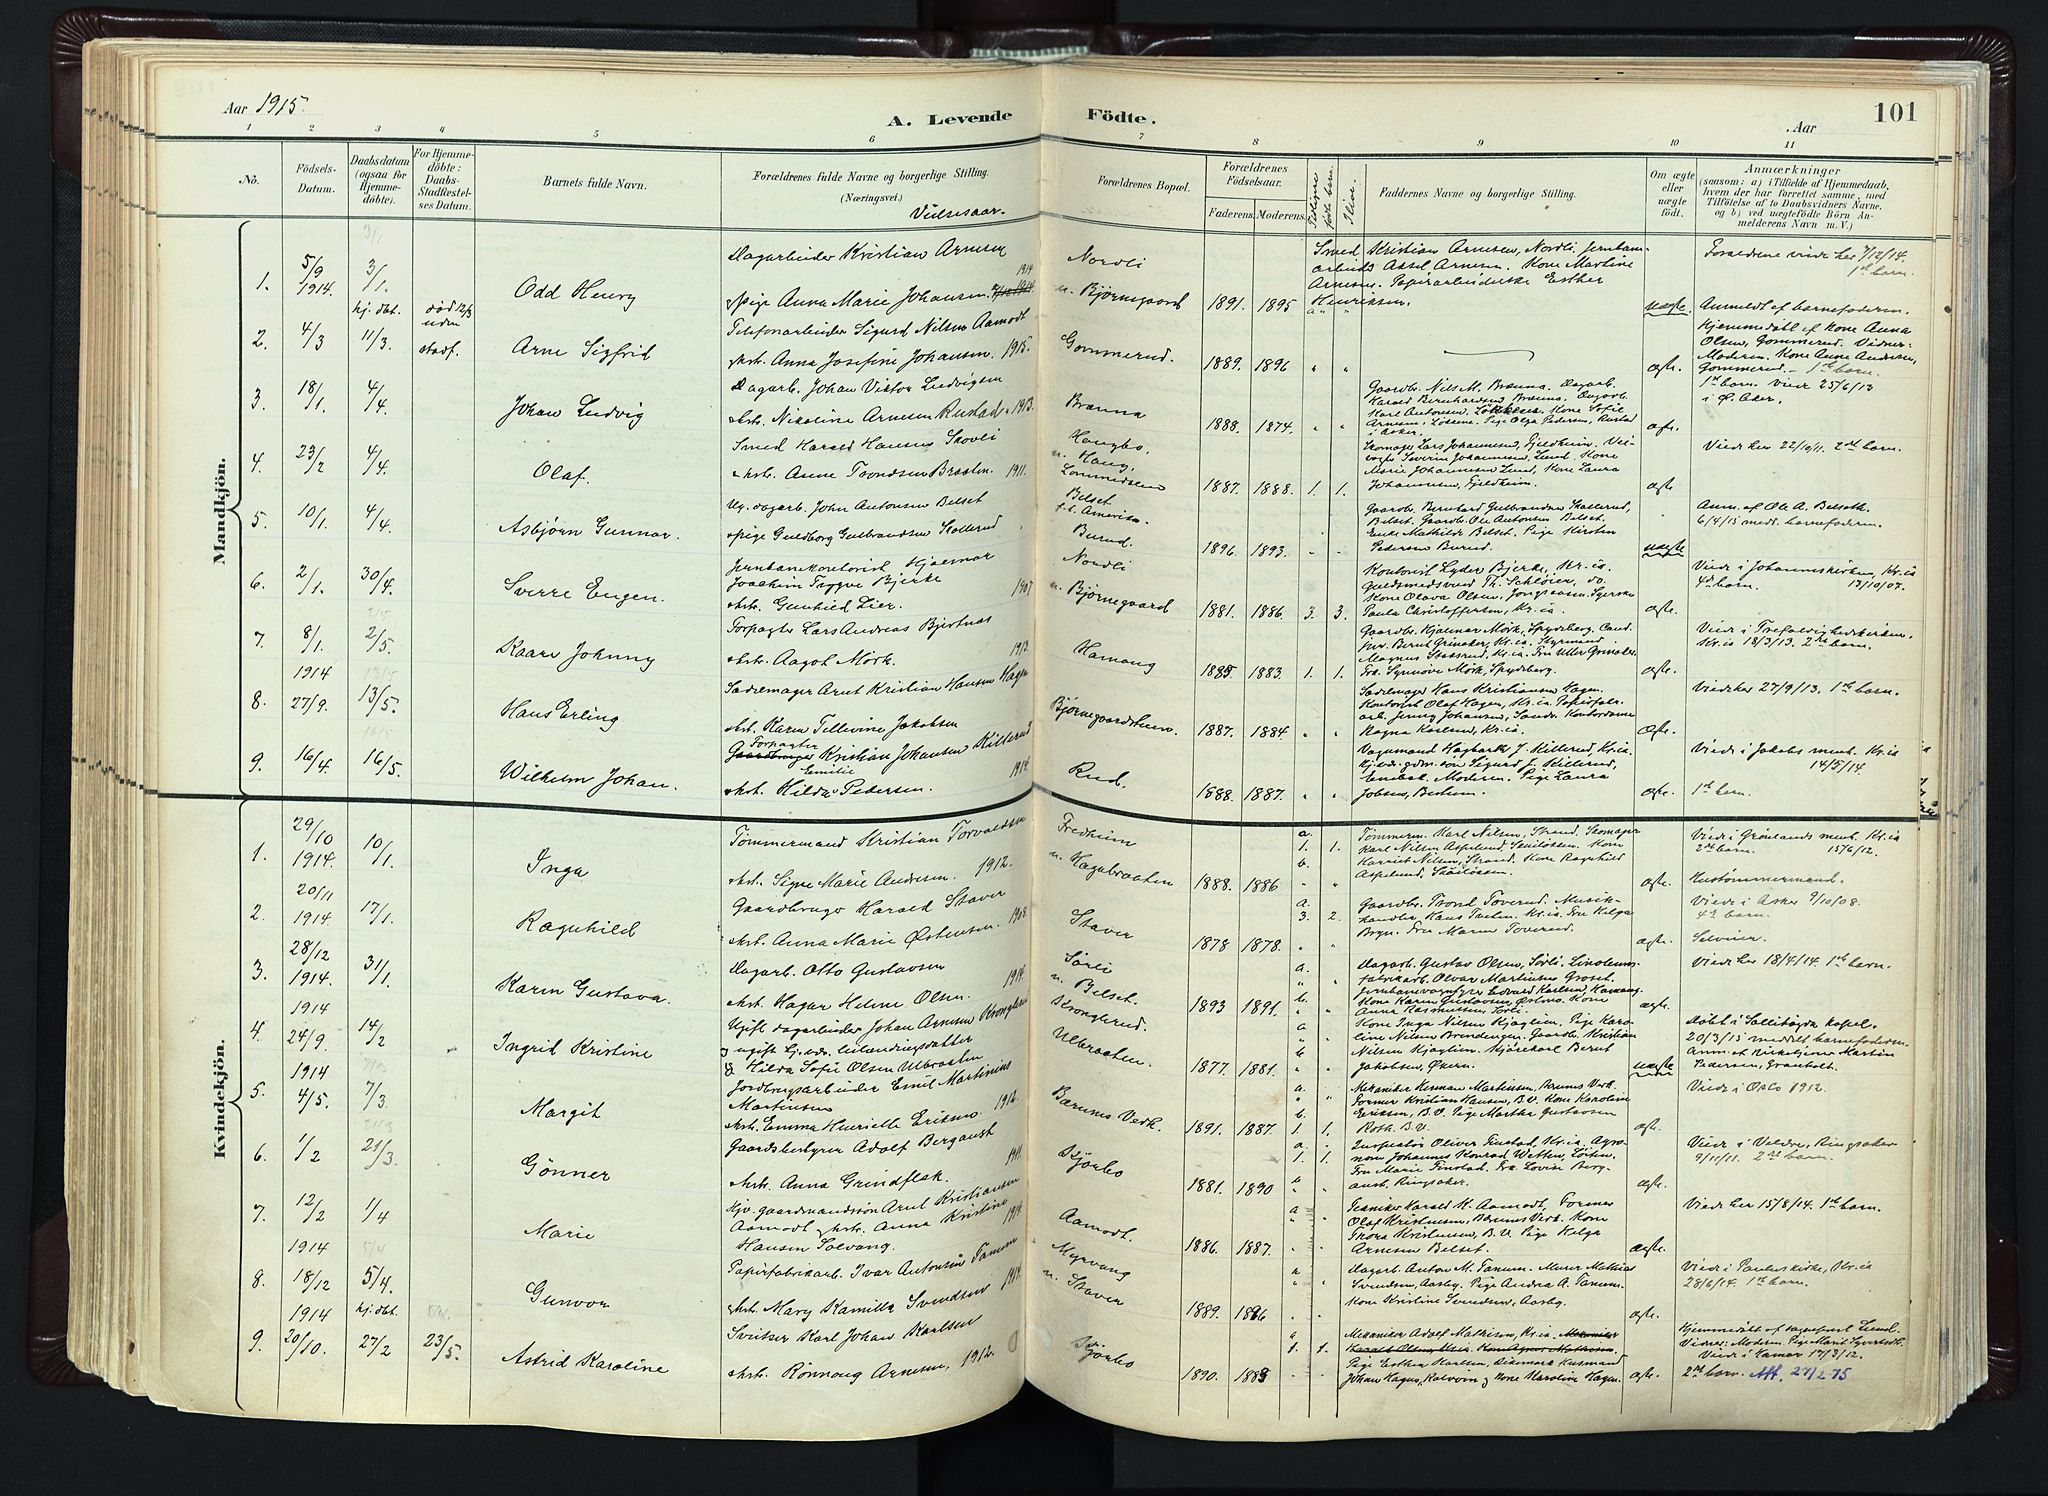 Aar 1915.
A. Levende Födte.
Aar
101
1 2 3 4 5 6 7 8 9 10 11
No.
Födsels-Datum.
Daabsdatum (ogsaa for Hjemme-döbte).
For Hjemme-döbte: Daabs-Stadfæstel-ses Datum.
Barnets fulde Navn.
Forældrenes fulde Navne og borgerlige Stilling. (Næringsvei.)
Vielsesaar.
Forældrenes Bopæl.
Forældrenes Födselsaar.
Faderens. Moderens.
Tidligere födte barn.
I live.
Faddernes Navne og borgerlige Stilling.
Om ægte eller uægte født.
Anmærkninger
(saasom: a) i Tilfælde af Hjemmedaab, hvem der har forrettet samme, med Tilföielse af to Daabsvidners Navne. og b) ved uegtefödte Börn Anmelderens Navn m. V.)
Mandkjön.
1. 5/9 1914. 3/1. Odd Henry
Dagarbeider Kristian Arnesen
Pige Anna Marie Johansen 1914
Nordli u. Bjørnegaard 1891. 1895
Smed Kristian Arnesen, Nordli, Jernban-
arbeider Axsel Arnesen. Kone Martine
Arnesen. Papirarbeiderske Esther
Henriksen.
uægte.
Forældrene viede her 7/12/14.
1ste barn.
Anmeldt af barnefaderen.
2. 4/3 hj. dbt. 11/3. død 12/3 uden stadf. Arne Sigfrid
Telefonarbeider Sigurd Nilsen Aamodt
Hst. Anna Josefine Johansen. 1915.
Gommerud. 1889. 1896 ægte.
Hjemmedøbt af Kone Anna
Olsen, Gommerud. Vidner:
Moderen. Kone Anne Andersen,
Gommerud. – 1ste barn.
3. 18/1. 4/4. Johan Ludvig
Dagarb. Johan Viktor Ludvigsen
Hst. Nikoline Arnesen Rustad. 1913.
Brænna 1888. 1874.
Gaardbr. Nils M. Brænna. Dagarb.
Harald Bernhardsen Brænna. Dagarb.
Karl Antonsen, Kone Sofie
Arnesen, Løkkene. Pige Olga Pedersen, Rustad
i Asker.
ægte.
1ste barn. Viede 25/6/13
i Ø. Aker.
4. 23/2 4/4. Olaf.
Smed Harald Hansen Skovli
Hst. Anne Trondsen Braaten. 1911.
Haugbo, u. Haug, Lommedalen 1887. 1888. 1. 1.
Skomager Lars Johannesen, Fjeldheim. Vei-
vogter Severin Johannesen, Lund. Kone
Marie Johannesen Lund, Kone Laura
Johannesen, Fjeldheim.
ægte
Viede her 22/10/11. 2det barn.
5. 10/1. 4/4. Asbjørn Gunnar.
Ug. dagarb. John Antonsen Belset
Pige Guldborg Gulbrandsen Skollerud
Belset f.t. Amerika. Burud. 1896. 1893.
Gaardbr. Bernhard Gulbrandsen Skollerud,
Belset. Gaardbr. Ole Antonsen Belset.
Enke Mathilde Belset. Pige Kirsten
Pedersen Burud.
uægte
Anm. af Ole A. Belseth.
6/4/15 medd. barnefaderen.
6. 2/1. 30/4. Sverre Eugen.
Jernbanekontorist Hjalmar
Joachim Trygve Bjerke 1907
Hst. Gunhild Lier.
Nordli u. Bjørnegaard 1881. 1886. 3. 3.
Kontorist Lyder Bjerke, Kr.ia.
Guldsmedsvend Th. Schløier, do.
Kone Olava Olsen, Syerske
Paula Christoffersen, Kr.ia.
ægte.
Viede i Johanneskirken, Kr.ia
4de barn. 17/10/07.
7. 8/1. 2/5. Kaare Johnny
Forpagter Lars Andreas Bjertnæs 1913
Hst. Aagot Mørk.
Hamang 1885 1883. 1. 1.
Gaardbr. Hjalmar Mørk, Spydeberg. Cand.
jur. Bernt Grinaker, Kr.ia. Styrmand
Magnus Stadsrud, Kr.ia. Fru Uller Grinaker
Frk. Synnøve Mørk, Spydeberg.
ægte.
Viede i Trefoldighedskirken.
Kr.ia 18/3/13. 2det barn.
8. 1914 27/9. 13/5. Hans Erling
Sadelmager Arnt Kristian Hansen Hagen
Hst. Karen Tellevine Jakobsen
Bjørnegaardsteien. 1887. 1884.
Sadelmager Hans Kristiansen Hagen.
Kontorist Olaf Hagen, Kr.ia. Papirfabr.
arb. Jenny Johansen, Sands. Kontordame
Ragna Karlsen, Kr.ia.
Ægte.
Viede her 27/9/13. 1ste barn.
9. 16/4. 16/5. Wilhelm Johan.
Forpagter
Gaardbruger Kristian Johansen Killerud
Emilie
Hst. Hilda Pedersen. 1914.
Rud. 1888. 1887.
Vognmand Hagbart J. Killerud, Kr.ia.
Hj.v. gdm. søn Sigurd J. Killerud,
Enebak. Moderen. Pige Laura
Jobsen, Berum.
ægte.
Viede i Jakobs menh. Kr.ia
14/5/14.
1ste barn.
Kvindekjön.
1. 29/10 1914. 10/1. Inga
Tømmermand Kristian Torvaldsen
Hst. Signe Marie Andresen. 1912.
Fredheim u. Hagabraaten 1888. 1886 a. 1. 1. b.
Tømmerm. Karl Nilsen, Strand. Skomager
Karl Nilsen Aspelund, Kone
Harriet Nilsen, Strand. Kone Ragnhild
Aspelund,
ægte.
Viede i Grønlands menh. Kr.ia
2det barn. 15/6/12.
Hustømmermand.
2. 20/11 1914. 17/1. Ragnhild
Gaardbruger Harald Staver
Hst. Anna Marie Østensen. 1908.
Staver 1878 1878. a. 3. 2.
Gaardbr. Trond Toverud. Musik-
handler Hans Tveten. Kr.ia. Fru Helga
Bryn. Fru Maren Toverud.
ægte.
Viede i Asker 9/10/08.
4de barn.
Selveier.
3. 28/12 1914. 31/1. Karen Gustava.
Dagarb. Otto Gustavsen 1914.
Hst. Hagar Helene Olsen.
Sørli u. Belset. 1893 1891. a. b.
Dagarb. Gustav Olsen, Sørli. Linoleums-
fabrikarb. Olvar Martinsen Groset.
Jernbanevognfyre Edvard Karlsen, Hamang.
Kone Karen Gustavsen, Kone
Anna Rasmussen, Sørli.
ægte.
Viede her 18/4/14. 1ste barn.
4. 1914 24/9. 14/2 Ingrid Kristine
Ugift dagarbeider Johan Arnesen Kronglerud
og ugift hj.vær. leilændingsdatter
Hilda Sofie Olsen Ulbraaten
Kronglerud. Ulbraaten. 1877. 1881. a b
Kone Inga Nilsen Kjaglien, Pige Karo-
line Nilsen Brendengen. Gaardbr. Kristian
Nilsen Kjaglien. Kjørekarl Bernt
Jakobsen, Økern.
uægte
Døbt i Sollihøgda kapel.
20/3/15 meddelt barnefaderen.
Anm. af Kirketjener Martin
Pedersen, Granholt.
5. 1914 4/5. 7/3. Margit
Jordbrugsarbeider Emil Martinius
Martinsen
Hst. Emma Henriette Eriksen. 1912.
Bærums Verk. 1891. 1887. a. b. 1. 1.
Mekaniker Herman Martinsen, Bærums Verk.
Former Kristian Hansen, B.V. Kone Karoline
Eriksen, B.V. Pige Martha Gustavsen
Roth. B.V.
ægte.
Viede i Oslo 1912.
6. 1/2 21/3. Gønner
Gaardsbestyrer Adolf Bergaust
Hst. Anna Grindflek. 1911.
Kjørbo 1881. 1890 a. 1. 1. b
Inspektør Oliver Finstad, Kr.ia. Agro-
nom Johannes Konrad Wetten, Løiten.
Fru Marie Finstad. Fra Lovise Berg-
aust. Ringsaker.
ægte.
Viede i Veldre, Ringsaker
9/11/11. 2det barn.
7. 12/2 1/4 Marie
Hjv. gaardmandssøn Arnt Kristiansen
Aamodt og Hst. Anna Kristine
Hansen Solvang. 1914
Aamodt. 1886. 1887. a
Tekniker Harald K. Aamodt, Former
Olaf Kristensen, Bærums Verk. Kone
Thora Kristensen, B.V. Pige Helga
Arnesen Belset.
Ægte.
Viede her 15/8/14. 1ste barn.
8. 1914 18/12 5/4. Gunvor
Papirfabrikarb. Ivar Antonsen Tanum
Hst. Mary Kamilla Svendsen 1914
Myrvang u. Staver 1889. 1896 a
Dagarb. Anton M. Tanum. Murer Mathias
Svendsen, Aasby. Pige Andrea A. Tanum.
Kone Kristine Svendsen, Aasby.
ægte.
Viede i Pauluskirke, Kr.ia
28/6/14. 1ste barn.
9. 1914 20/10. hj. dbt. 27/2 23/5. Astrid Karoline
Sveitser Karl Johan Karlsen
Hst. Rønnaug Arnesen, 1912.
Kjørbo 1890. 1885 a 1. 1.
Mekaniker Adolf Mathisen, Kr.ia.
Pige Esther Karlsen, Husmand
Johan Hagen, og Kone Karoline Hagen.
ægte.
Hjemmedøbt af sognepræst Lund.
Vidner: Moderen. Pige Marit Syvertsen.
Viede i Hamar 17/3/12.
2det barn. Att. 27/2 75